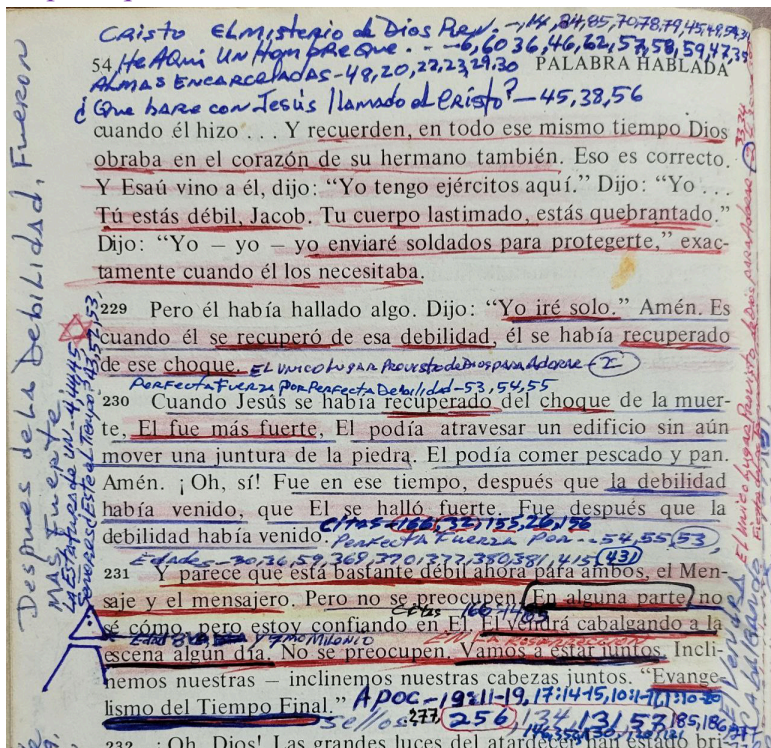 Cristo El misterio de Dios Rev.
54 He AQui Un Hombre Que. - - -6,60 36,46,62,57,58,59,47,39
PALABRA HABLADA
ALMAS ENCARCELADAS-48,20,22,23,29,30
¿Que hare con Jesús llamado el Cristo? -45,38,56
cuando él hizo . . . Y recuerden, en todo ese mismo tiempo Dios
obraba en el corazón de su hermano también. Eso es correcto.
Y Esaú vino a él, dijo: “Yo tengo ejércitos aquí.” Dijo: “Yo . . .
Tú estás débil, Jacob. Tu cuerpo lastimado, estás quebrantado.”
Dijo: “Yo – yo – yo enviaré soldados para protegerte,” exac-
tamente cuando él los necesitaba.
229 Pero él había hallado algo. Dijo: “Yo iré solo.” Amén. Es
cuando él se recuperó de esa debilidad, él se había recuperado
de ese choque. El Unico Lugar Provisto de Dios para Adorar -
Perfecta Fuerza Por Perfecta Debilidad-53,54,55
230 Cuando Jesús se había recuperado del choque de la muer-
te, El fue más fuerte, El podía atravesar un edificio sin aún
mover una juntura de la piedra. El podía comer pescado y pan.
Amén. ¡Oh, sí! Fue en ese tiempo, después que la debilidad
había venido, que El se halló fuerte. Fue después que la
debilidad había venido. Citas-166,(32)155,26,156
Perfecta Fuerza Por--54,55,53
Edades-30,36,59,369,370,377,380,381,415(431)
231 Y parece que está bastante débil ahora para ambos, el Men-
saje y el mensajero. Pero no se preocupen. En alguna parte, no
sé cómo, pero estoy confiando en El. El vendrá cabalgando a la
escena algún día. No se preocupen. Vamos a estar juntos. Incli-
nemos nuestras – inclinemos nuestras cabezas juntos. “Evange-
lismo del Tiempo Final.” Apoc-19:11-19, 17:14-15, 10:1-
Sellos 277, 256, 134, 13, 57, 185, 186
232 ¡Oh, Dios! Las grandes luces del atardecer han estado bri-
Despues de la Debilidad, Fueron
MAS Fuerte
La Estatura de Un-4,44,45
Señores Es Este el Tiempo?
El Unico Lugar Provisto de Dios para Adorar
El Vendra
Cabalgando